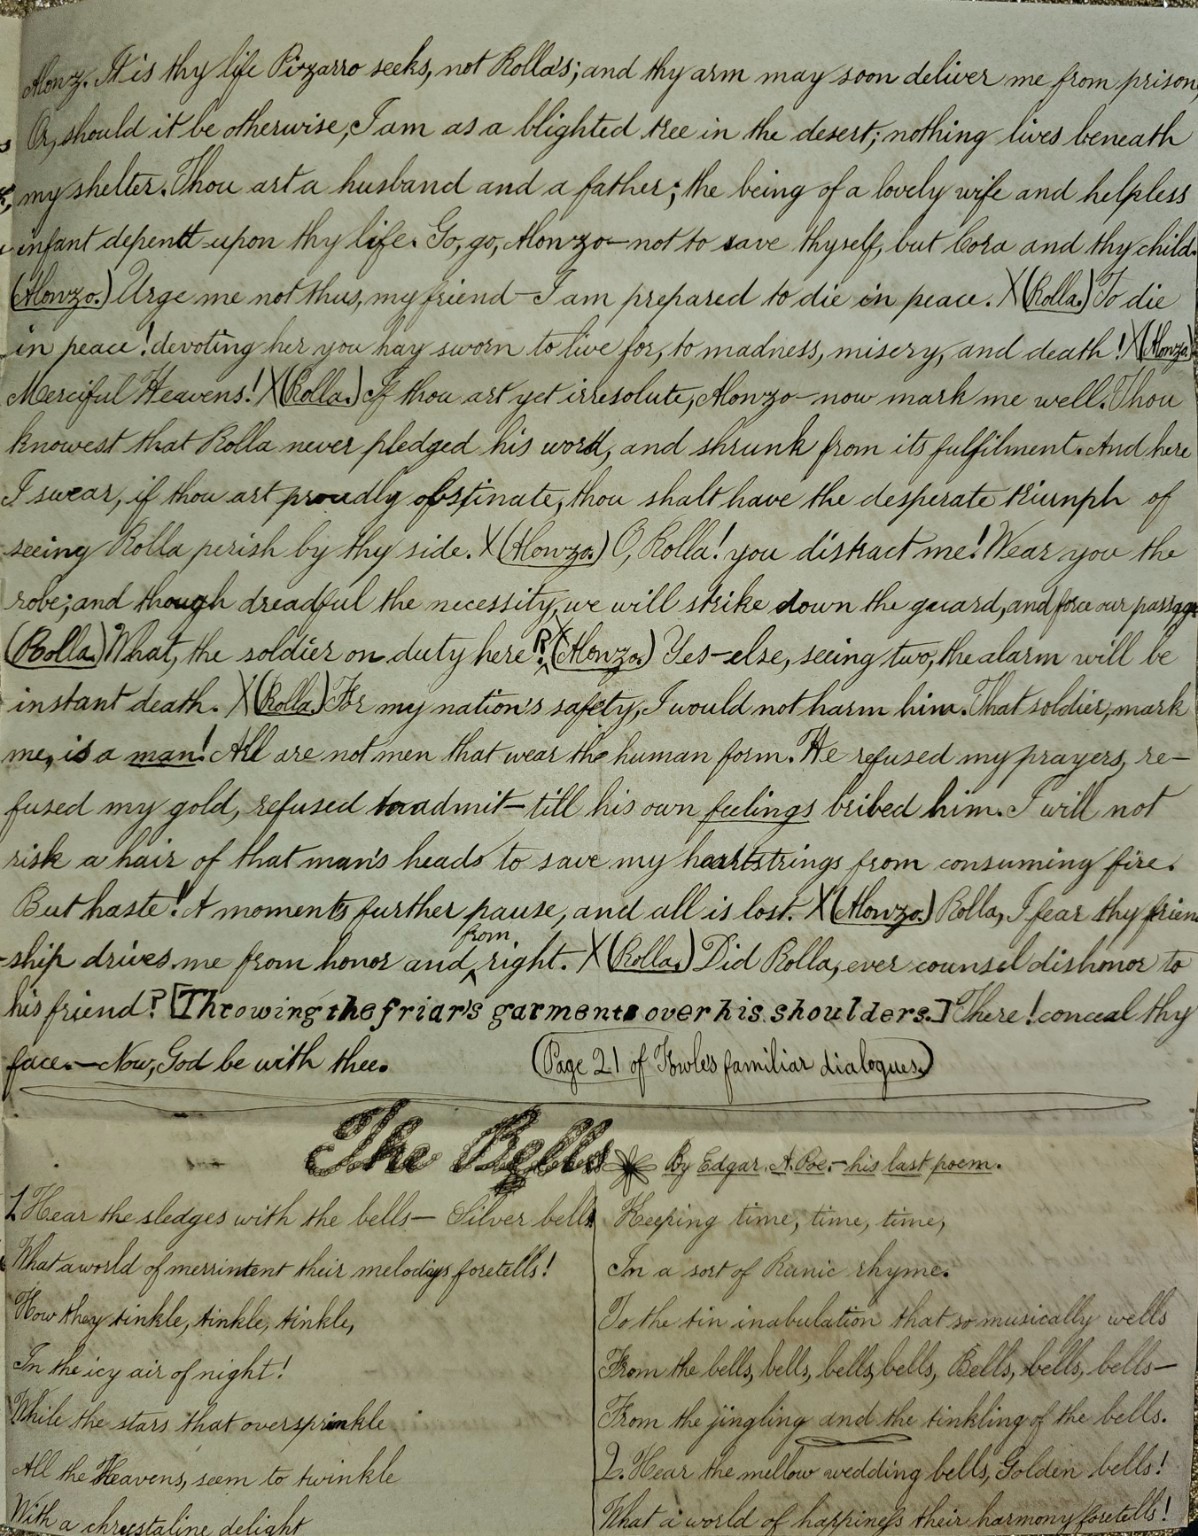 Alonz. It is thy life Pizarro seeks, not Rolla's; and thy arm may soon deliver me from prison,
Or, should it be otherwise, I am as a blighted tree in the desert; nothing lives beneath
my shelter. Thou art a husband and a father; the being of a lovely wife and helpless
infant depend upon thy life. Go, go, Alonzo—not to save thyself, but Cora and thy child.
(Alonzo.) Urge me not thus, my friend—I am prepared to die in peace. X (Rolla.) To die
in peace! devoting her you hay sworn to live for, to madness, misery, and death! X (Alonzo.)
Merciful Heavens! X (Rolla.) If thou art yet irresolute, Alonzo—now mark me well. Thou
knowest that Rolla never pledged his word, and shrunk from its fulfilment. And here
I swear, if thou art proudly obstinate, thou shalt have the desperate triumph of
seeing Rolla perish by thy side. X (Alonzo.) O, Rolla! you distract me! Wear you the
robe; and though dreadful the necessity, we will strike down the guard, and force our passage
(Rolla.) What, the soldier on duty here? X (Alonzo.) Yes—else, seeing two, the alarm will be
instant death. X (Rolla.) For my nation's safety, I would not harm him. That soldier, mark
me, is a man! All are not men that wear the human form. He refused my prayers, re—
fused my gold, refused to admit—till his own feelings bribed him. I will not
risk a hair of that man's heads to save my heartstrings from consuming fire.
But haste! A moments further pause, and all is lost. X (Alonzo.) Rolla, I fear thy frien
-ship drives me from honor and from right. X (Rolla.) Did Rolla, ever counsel dishonor to
his friend? [Throwing the friar's garments over his shoulders.] There! conceal thy
face.—Now, God be with thee. (Page 21 of Fowles familiar dialogues.)
The Bells By Edgar. A. Poe.—his last poem.
1 Hear the sledges with the bells— Silver bells
What a world of merriment their melodys foretells!
How they tinkle, tinkle, tinkle,
In the icy air of night!
While the stars that oversprinkle
All the Heavens, seem to twinkle
With a chrestaline delight
Keeping time, time, time,
In a sort of Runic rhyme.
To the tin inabulation that so musically wells
From the bells, bells, bells, bells, Bells, bells, bells—
From the jingling and the tinkling of the bells.
2. Hear the mellow wedding bells, Golden bells!
What a world of happiness their harmony foretells!